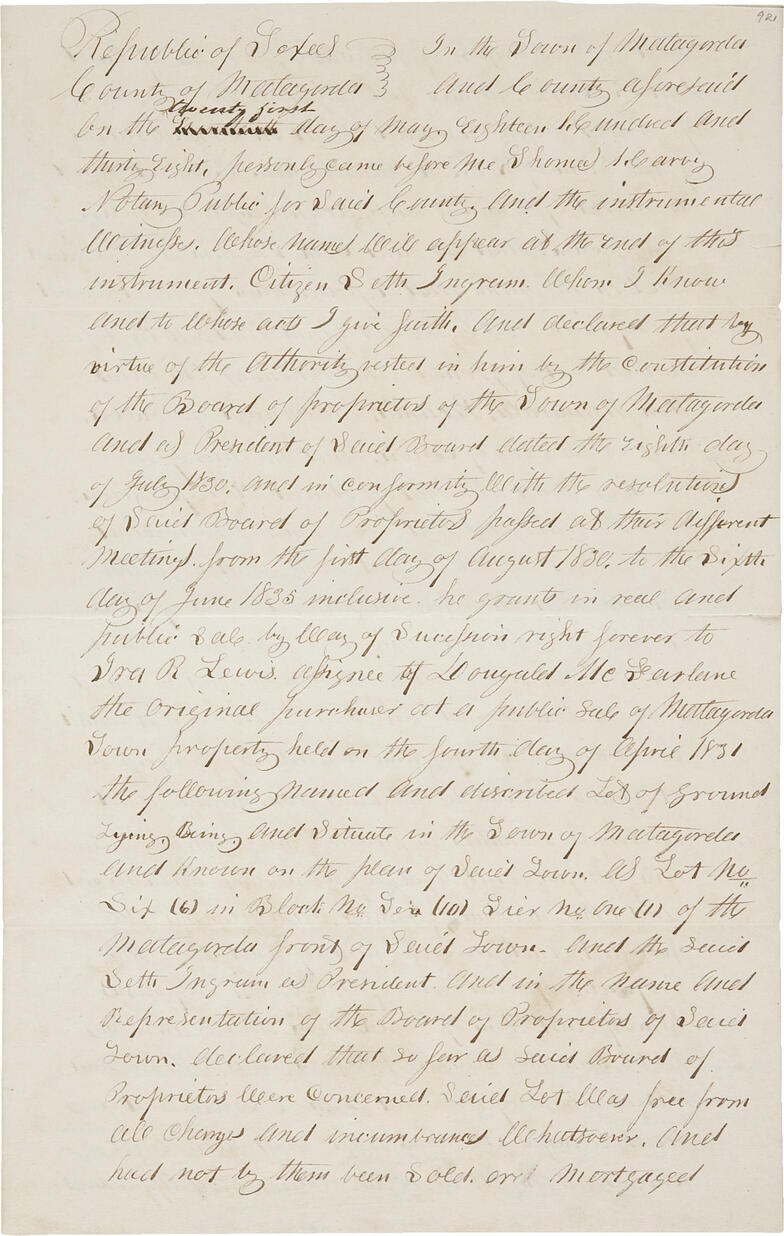 921
Republic of Texas In the Town of Matagorda
County of Matagorda And County aforesaid
twenty first
On the day of May, Eighteen Hundred And
thirty Eight, personly came before me Thomas Harvey
Notary Public for Said County, And the instrumental
Witnesses. Whose names Will appear at the End of this
instrument. Citizen Seth Ingram. Whom I Know
And to Whose acts I give faith. And declared that by
virtue of the Authority vested in him by the Constitution
of the Board of proprietors of the Town of Matagorda
And as President of Said Board dated the Eighth day
of July 1830. and in conformity With the resolutions
of Said Board of Proprietors passed at their different
Meetings. from the first day of August 1830. to the Sixth
day of June 1835 inclusive. he grants in real and
public Sale by Way of Sucession right forever to
Ira R Lewis. assignee of Dougald McFarlane
the original purchaser at a public Sale of Mattagorda
Town property held on the fourth day of April 1831
the following Named And discribed Lot of Ground
Lying, Being, And Situate in the Town of Matagorda
And Known on the plan of Said Town. as Lot No
Six (6) in Block No Ten (10) Tier No One (1) of the
Matagorda front of Said Town - And the Said
Seth Ingram as President. And in the Name And
Representation of the Board of Proprietors of Said
Town. declared that so far as said Board of
Proprietors Were Concerned. Said Lot Was free from
all Charges And incumbrances Whatsoever. And
had not by them been Sold. or Mortgaged